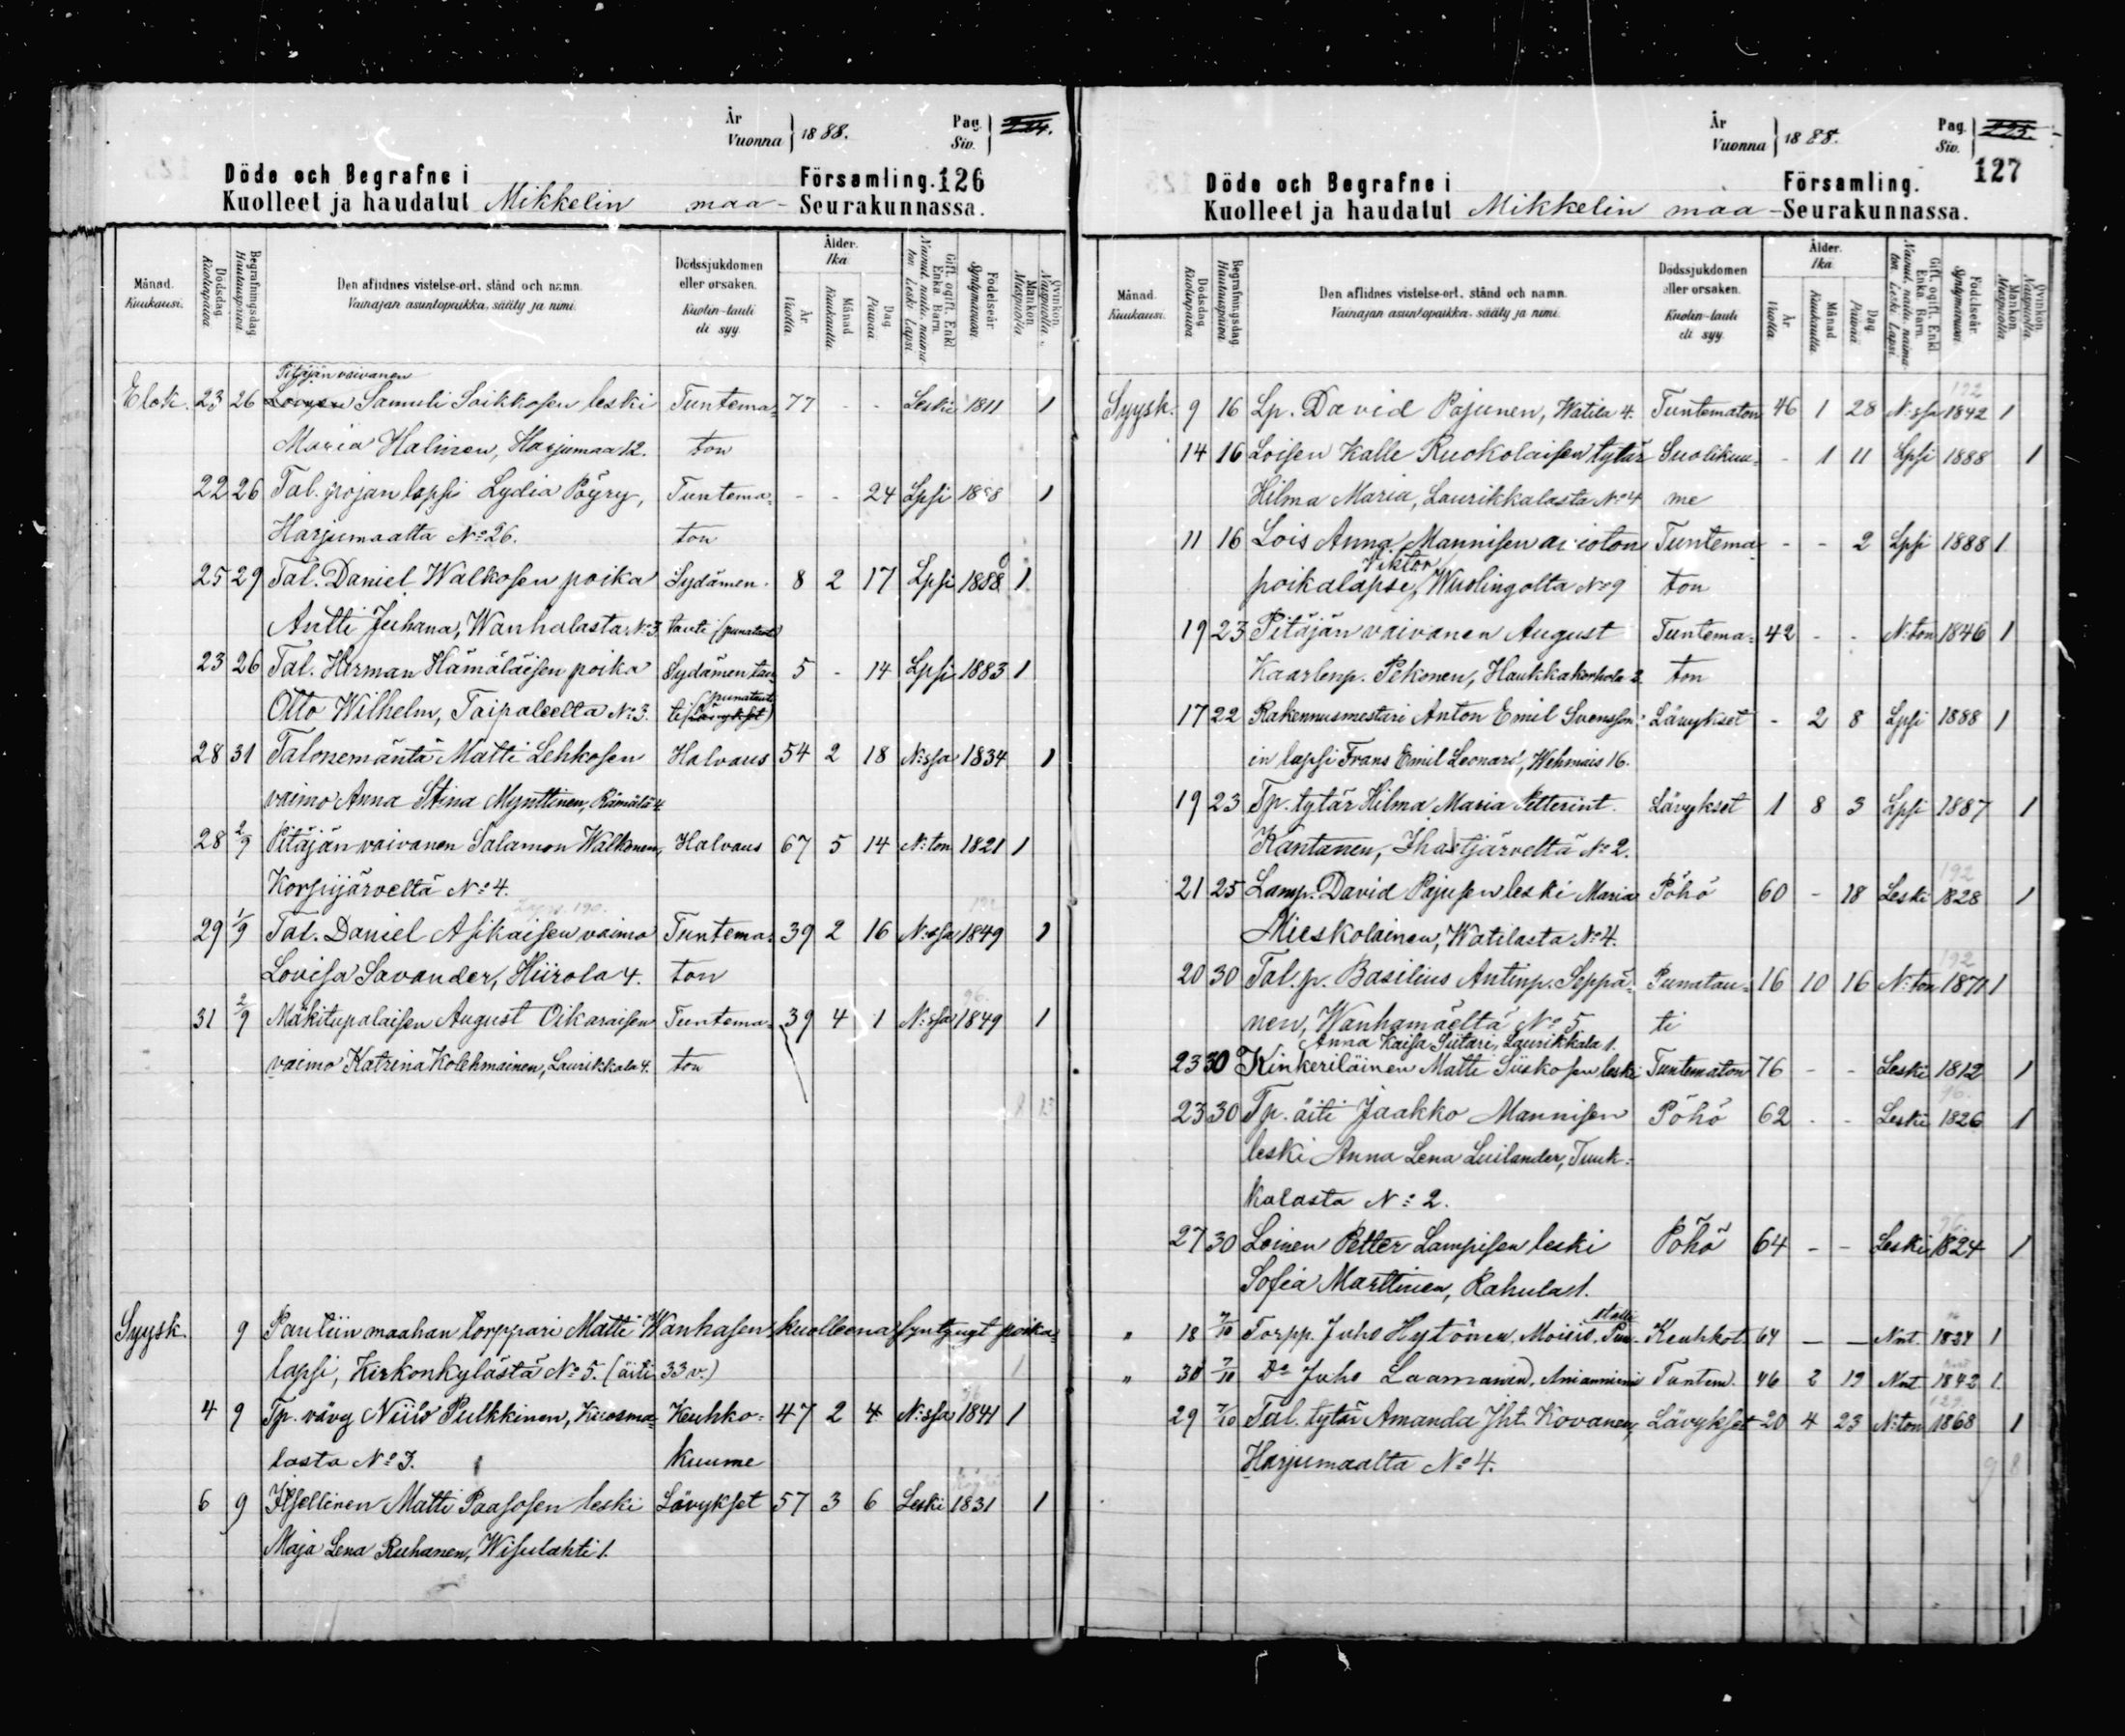 År
Vuonna } 1888.
Pag.
Siv. } 224.
Döde och Begrafne i Församling. 126
Kuolleet ja haudatut Mikkelin maa- Seurakunnassa.
Månad. Kuukausi.
Dödsdag. Kuolinpäivä.
Begrafningsdag. Hautauspäivä.
Den aflidnes vistelse-ort, stånd och namn.
Vainajan asuntopaikka, sääty ja nimi.
Dödssjukdomen eller orsaken.
Kuolin-tauti eli syy.
Ålder. Ikä.
År. Vuotta.
Månad. Kuukautta.
Dag. Päivää.
Gift, ogift, Enkl. Enka, Barn.
Födelseår. Syntymävuosi.
Mankön. Miespuolia.
Qvinkön. Naispuolia.
Pitäjän vaivanen
Elok. 23 26 Loysen Samuli Soikkosen leski Tuntema- 77 - - Leski 1811 1
Maria Halinen, Harjumaa 12. ton
22 26 Tal. pojan lapsi Lydia Pöyry, Tuntema- - - 24 Lpsi 1888 1
Harjumaalta No 26. ton
25 29 Tal. Daniel Walkosen poika Sydämen- 8 2 17 Lpsi 1888 1
Antti Juhana, Wanhalasta No 3. tauti (punatauti)
23 26 Tal. Herman Hämäläisen poika Sydämen tau- 5 - 14 Lpsi 1883 1
punatauti
Otto Wilhelm, Taipaleelta No 3. ti (Lävykset)
28 31 Talonemäntä Matti Lehkosen Halvaus 54 2 18 N:ssa 1834 1
vaimo Anna Stina Mynttinen, Rämälä 4
28 2/9 Pitäjän vaivanen Salamon Walkonen, Halvaus 67 5 14 N:ton 1821 1
Korpijärveltä No 4.
29 1/9 Tal. Daniel Asikaisen vaimo Tuntema- 39 2 16 N:ssa 1849 1
Lovisa Savander, Hiirola 4. ton
96.
31 2/9 Mäkitupalaisen August Oikaraisen Tuntema- 39 4 1 N:ssa 1849 1
vaimo Katrina Kolehmainen, Laurikkala 4. ton
Syysk. 9 Pantiin maahan torppari Matti Wanhasen kuolleena syntynyt poika-
lapsi, Kirkonkylästä No 5. (äiti 33 v.) 1
4 9 Tp. vävy Niilo Pulkkinen, Kuosma- Keuhko- 47 2 4 N:ssa 1841 1
lasta No 3. kuume
6 9 Itsellinen Matti Paasosen leski Lävykset 57 3 6 Leski 1831 1
Maja Lena Ruhanen, Wisulahti 1.
År
Vuonna } 1888.
Pag.
Siv. } 225.
127
Döde och Begrafne i Församling.
Kuolleet ja haudatut Mikkelin maa- Seurakunnassa.
Månad. Kuukausi.
Dödsdag. Kuolinpäivä.
Begrafningsdag. Hautauspäivä.
Den aflidnes vistelse-ort, stånd och namn.
Vainajan asuntopaikka, sääty ja nimi.
Dödssjukdomen eller orsaken.
Kuolin-tauti eli syy.
Ålder. Ikä.
År. Vuotta.
Månad. Kuukautta.
Dag. Päivää.
Gift, ogift, Enkl. Enka, Barn.
Födelseår. Syntymävuosi.
Mankön. Miespuolia.
Qvinkön. Naispuolia.
192
Syysk. 9 16 Lp. David Pajunen, Watila 4. Tuntematon 46 1 28 N:ssa 1842 1
14 16 Loisen Kalle Ruokolaisen tytär Suolikuu- - 1 11 Lpsi 1888 1
Hilma Maria, Laurikkalasta No 4 me
11 16 Lois Anna Mannisen avioton Tuntema- - - 2 Lpsi 1888 1
Viktor
poikalapse, Wuolingolta No 9 ton
19 23 Pitäjän vaivanen August Tuntema- 42 - - N:ton 1846 1
Kaarlenp. Pekonen, Haukkakorhola 2. ton
17 22 Rakennusmestari Anton Emil Svensson- Lävykset - 2 8 Lpsi 1888 1
in lapsi Frans Emil Leonard, Wehmais 16.
19 23 Tp. tytär Hilma Maria Petterint. Lävykset 1 8 3 Lpsi 1887 1
Kantanen, Ihastjärveltä No 2.
192
21 25 Lamp. David Pajusen leski Maria Pöhö 60 - 18 Leski 1828 1
Mieskolainen, Watilasta No 4.
192
20 30 Tal. p. Basilius Antinp. Seppä- Punatau- 16 10 16 N:ton 1871 1
nen, Wanhamäeltä No 5 ti
Anna Kaisa Siitari, Laurikkala 1.
23 30 Kinkeriläinen Matti Siiskosen leski Tuntematon 76 - - Leski 1812 1
96.
23 30 Tp. äiti Jaakko Mannisen Pöhö 62 - - Leski 1826 1
leski Anna Lena Luilander, Tuuk-
kalasta No 2.
96.
27 30 Loinen Petter Lampisen leski Pöhö 64 - - Leski 1824 1
Sofia Marttinen, Rahula 1.
" 18 7/10 Torpp. Juho Hytönen, Moisio Keuhkot. 64 — — Nnt. 1824 1
" 30 7/10 Do Juho Laamanen, Anianniemi Tuntem. 46 2 19 Nnt 1842 1
129.
29 7/10 Tal. tytär Amanda Jht. Kovanen, Lävykset 20 4 23 N:ton 1868 1
Harjumaalta No 4. 9 8